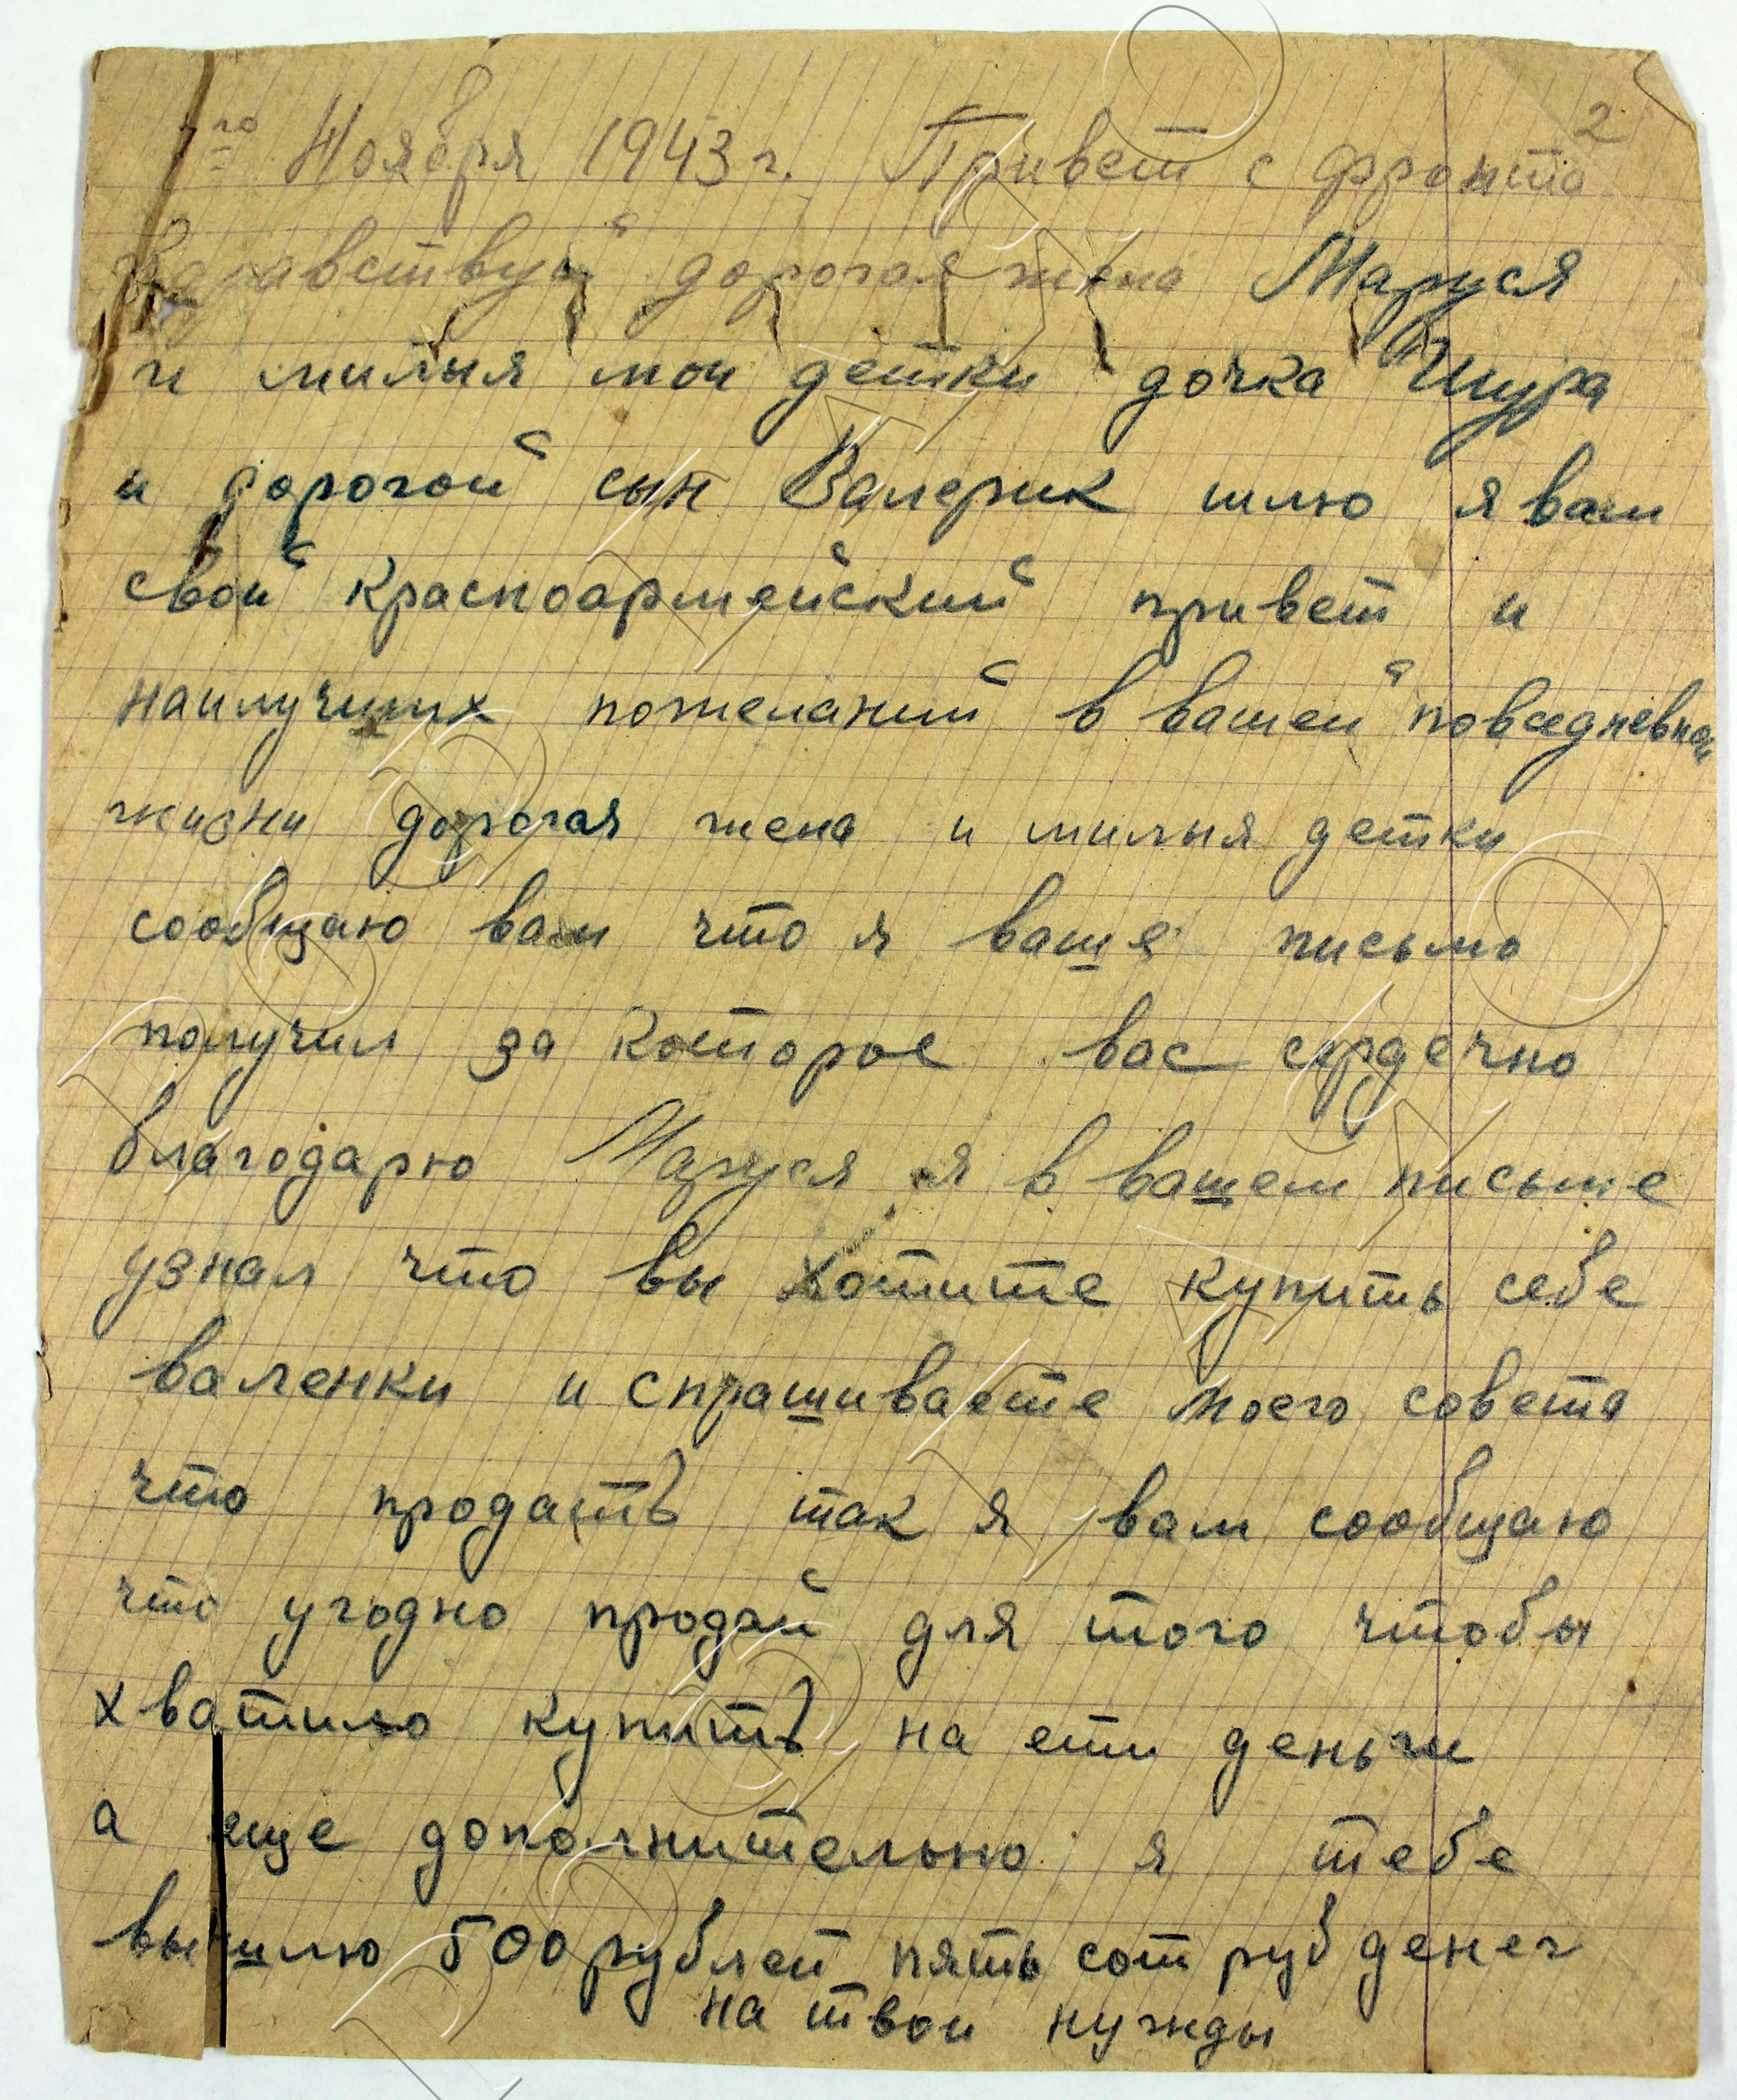 2
7го Ноября 1943 г. Привет с фронта
Здравствуй дорогая жена Маруся
и милыя мои детки дочка Шура
и дорогой сын Валерик шлю я вам
свой красноармейский привет и
наилучших пожеланий в вашей повседневной
жизни дорогая жена и милыя детки
сообщаю вам что я ваше письмо
получил за которое вас сердечно
благодарю Маруся я в вашем письме
узнал что вы хотите купить себе
валенки и спрашиваете моего совета
что продать так я вам сообщаю
что угодно продай для того чтобы
хватило купить на ети деньги
а еще дополнительно я тебе
вышлю 500 рублей пять сот руб денег
на твои нужды